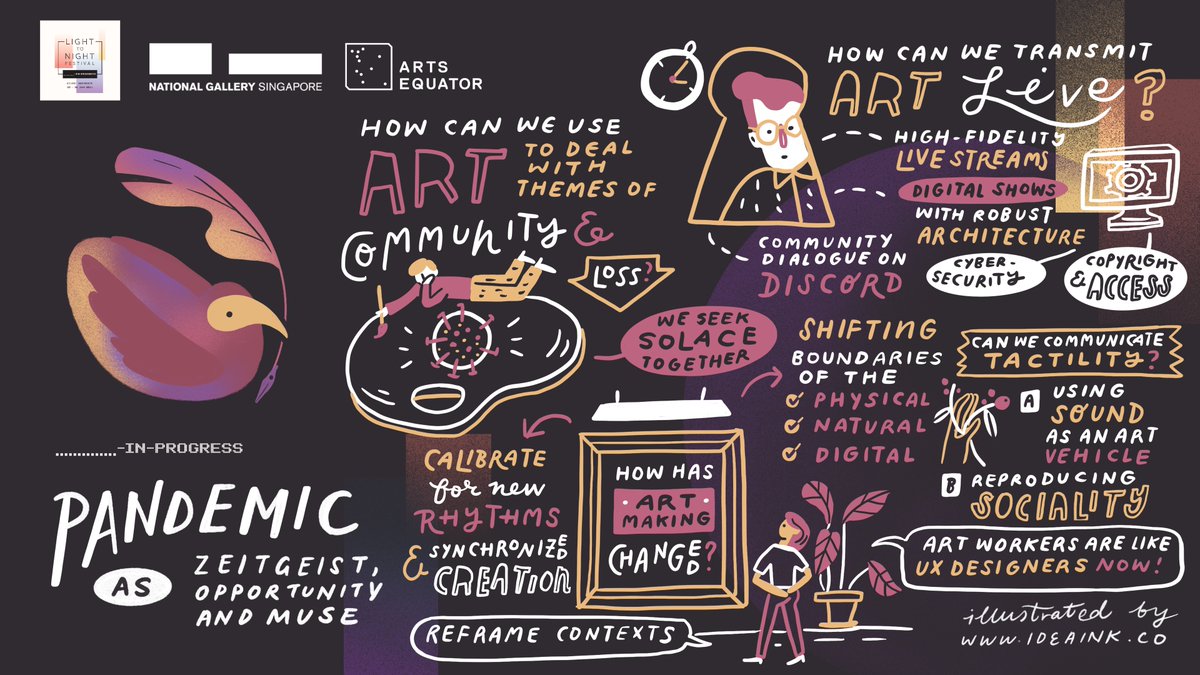 LIGHT
TO
NIGHT
FESTIVAL
NATIONAL GALLERY SINGAPORE
ARTS
EQUATOR
..............-IN-PROGRESS
PANDEMIC
AS
ZEITGEIST,
OPPORTUNITY
AND MUSE
HOW CAN WE USE
ART
TO DEAL
WITH
THEMES OF
COMMUNITY &
LOSS?
WE SEEK
SOLACE
TOGETHER
HOW CAN WE TRANSMIT
ART Live?
HIGH-FIDELITY
LIVE STREAMS
DIGITAL SHOWS
WITH ROBUST
ARCHITECTURE
CYBER-
SECURITY
COPYRIGHT
& ACCESS
COMMUNITY
DIALOGUE ON
DISCORD
HOW HAS
ART
MAKING
CHANGED?
CALIBRATE
for new
RHYTHMS
& SYNCHRONIZED
CREATION
SHIFTING
BOUNDARIES
OF THE
PHYSICAL
NATURAL
DIGITAL
CAN WE COMMUNICATE
TACTILITY?
A USING
SOUND
AS AN ART
VEHICLE
B REPRODUCING
SOCIALITY
ART WORKERS ARE LIKE
UX DESIGNERS NOW!
REFRAME CONTEXTS
illustrated by
WWW.IDEAINK.CO